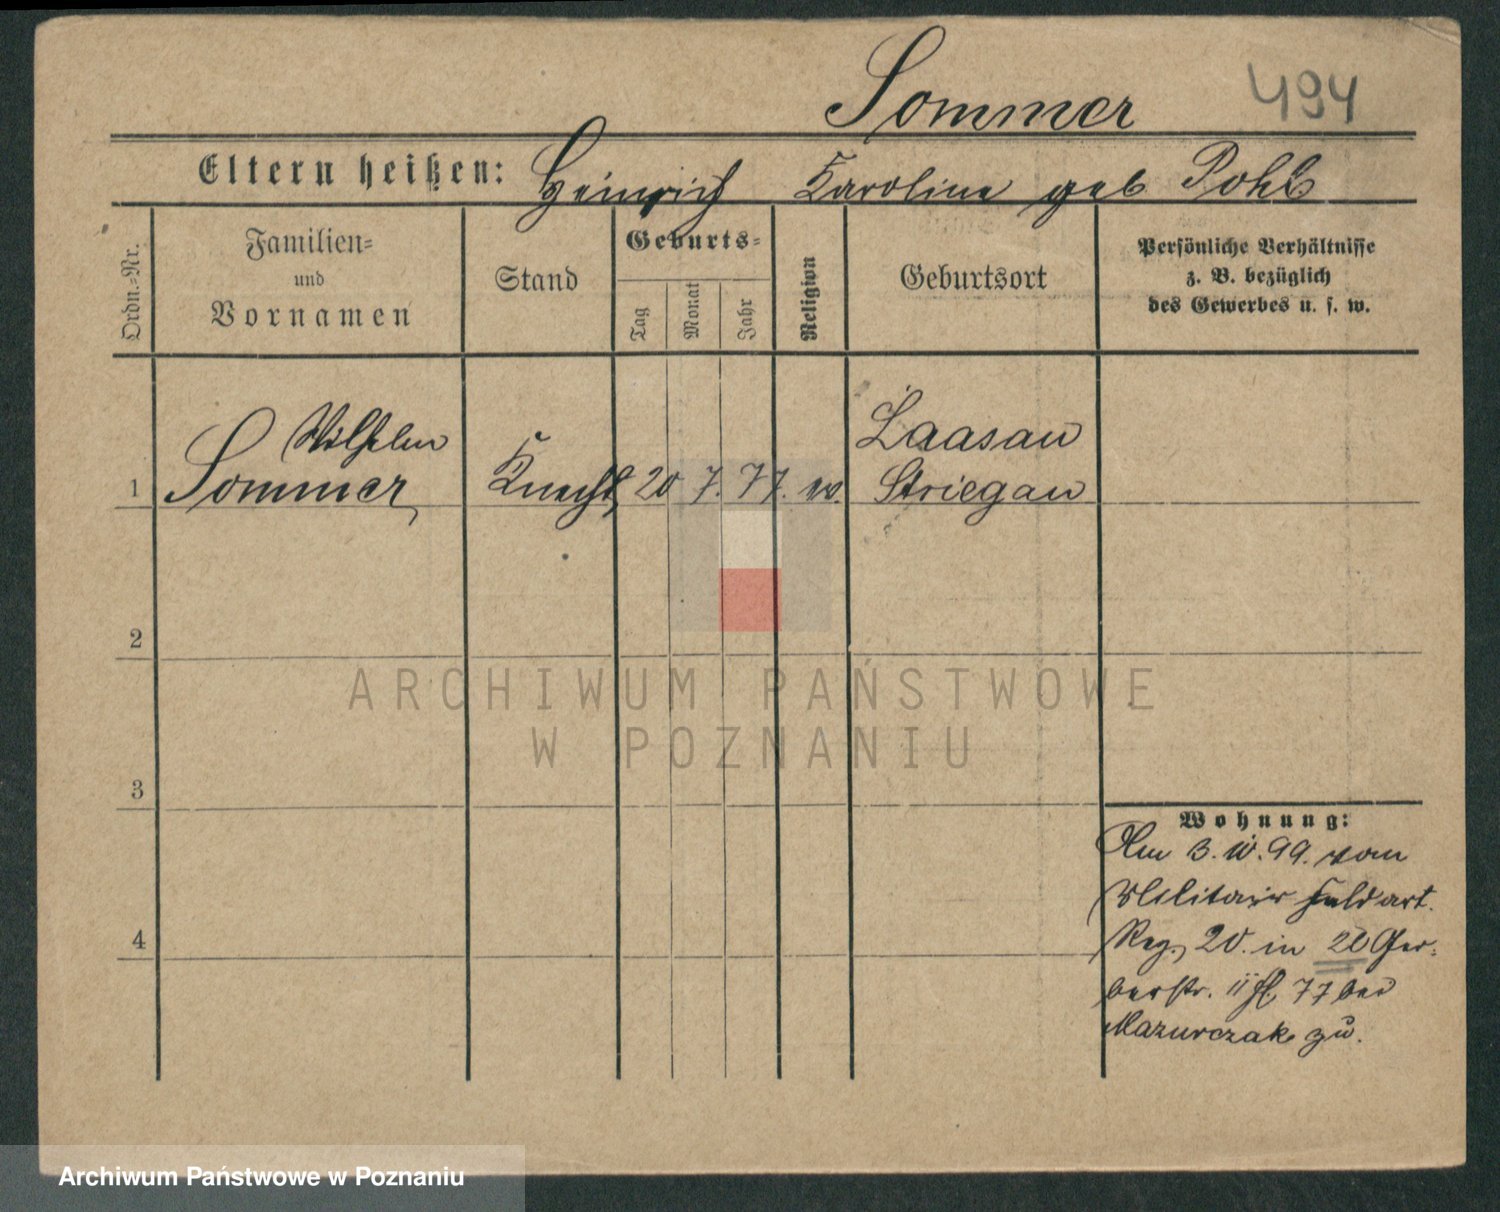 Sommer 494
Eltern heißen: Heinrich Karoline geb Pohl
Ordn.-Nr.
Familien-
und
Vornamen
Stand
Geburts-
Tag
Monat
Jahr
Religion
Geburtsort
Persönliche Verhältnisse
z. B. bezüglich
des Gewerbes u. s. w.
Wilhelm Laasan
1 Sommer Knecht 20 7. 77. Striegau
2
ARCHIWUM PAŃSTWOWE
W POZNANIU
3
Wohnung:
Am 3. 99. vom
Militair Feldart.
4
Reg. 20. in 20 Ger-
berstr. 77 bei
Mazurczak zu.
Archiwum Państwowe w Poznaniu